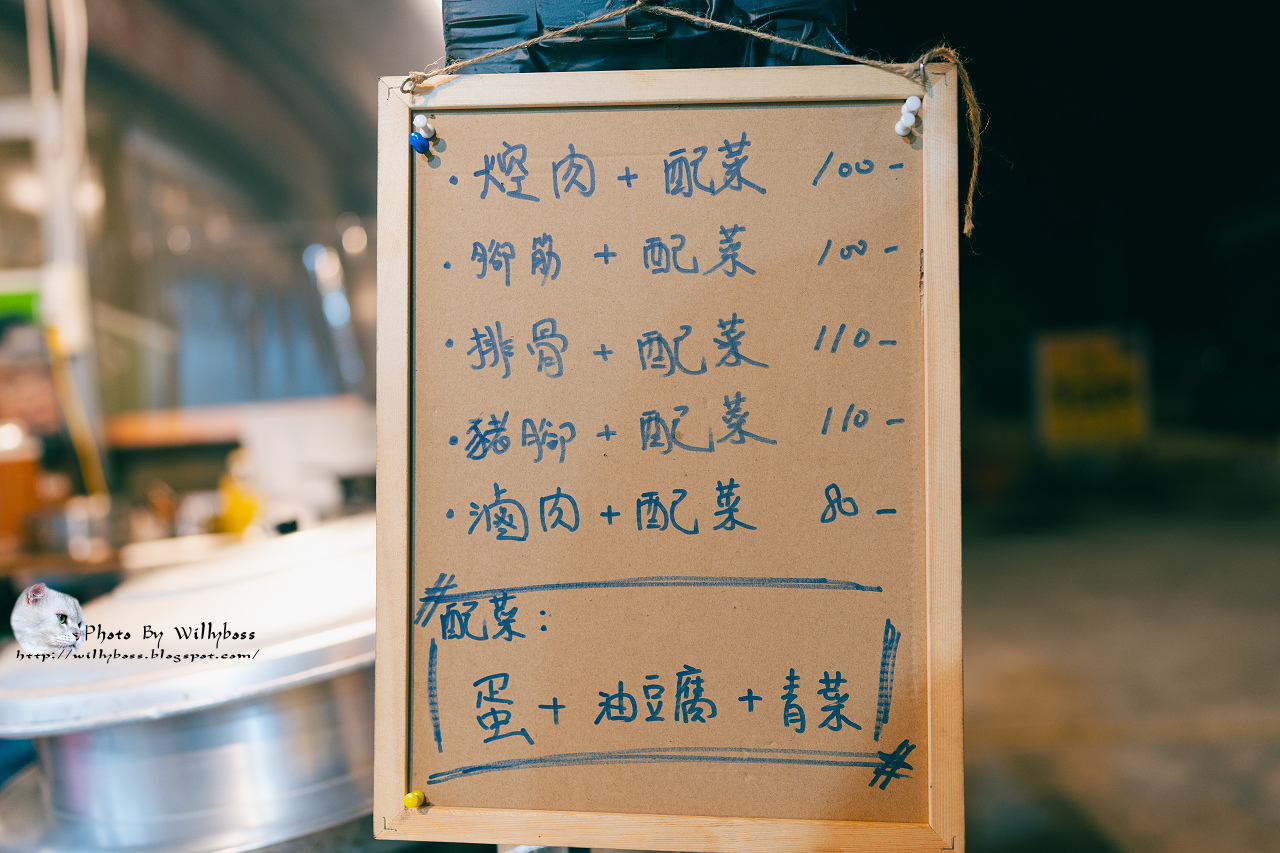 ·焢肉+配菜 100-
·腳筋+配菜 100-
·排骨+配菜 110-
·豬腳+配菜 110-
·滷肉+配菜 80-
#配菜:
蛋+油豆腐+青菜
#
Photo By Willyboss
http://willyboss.blogspot.com/